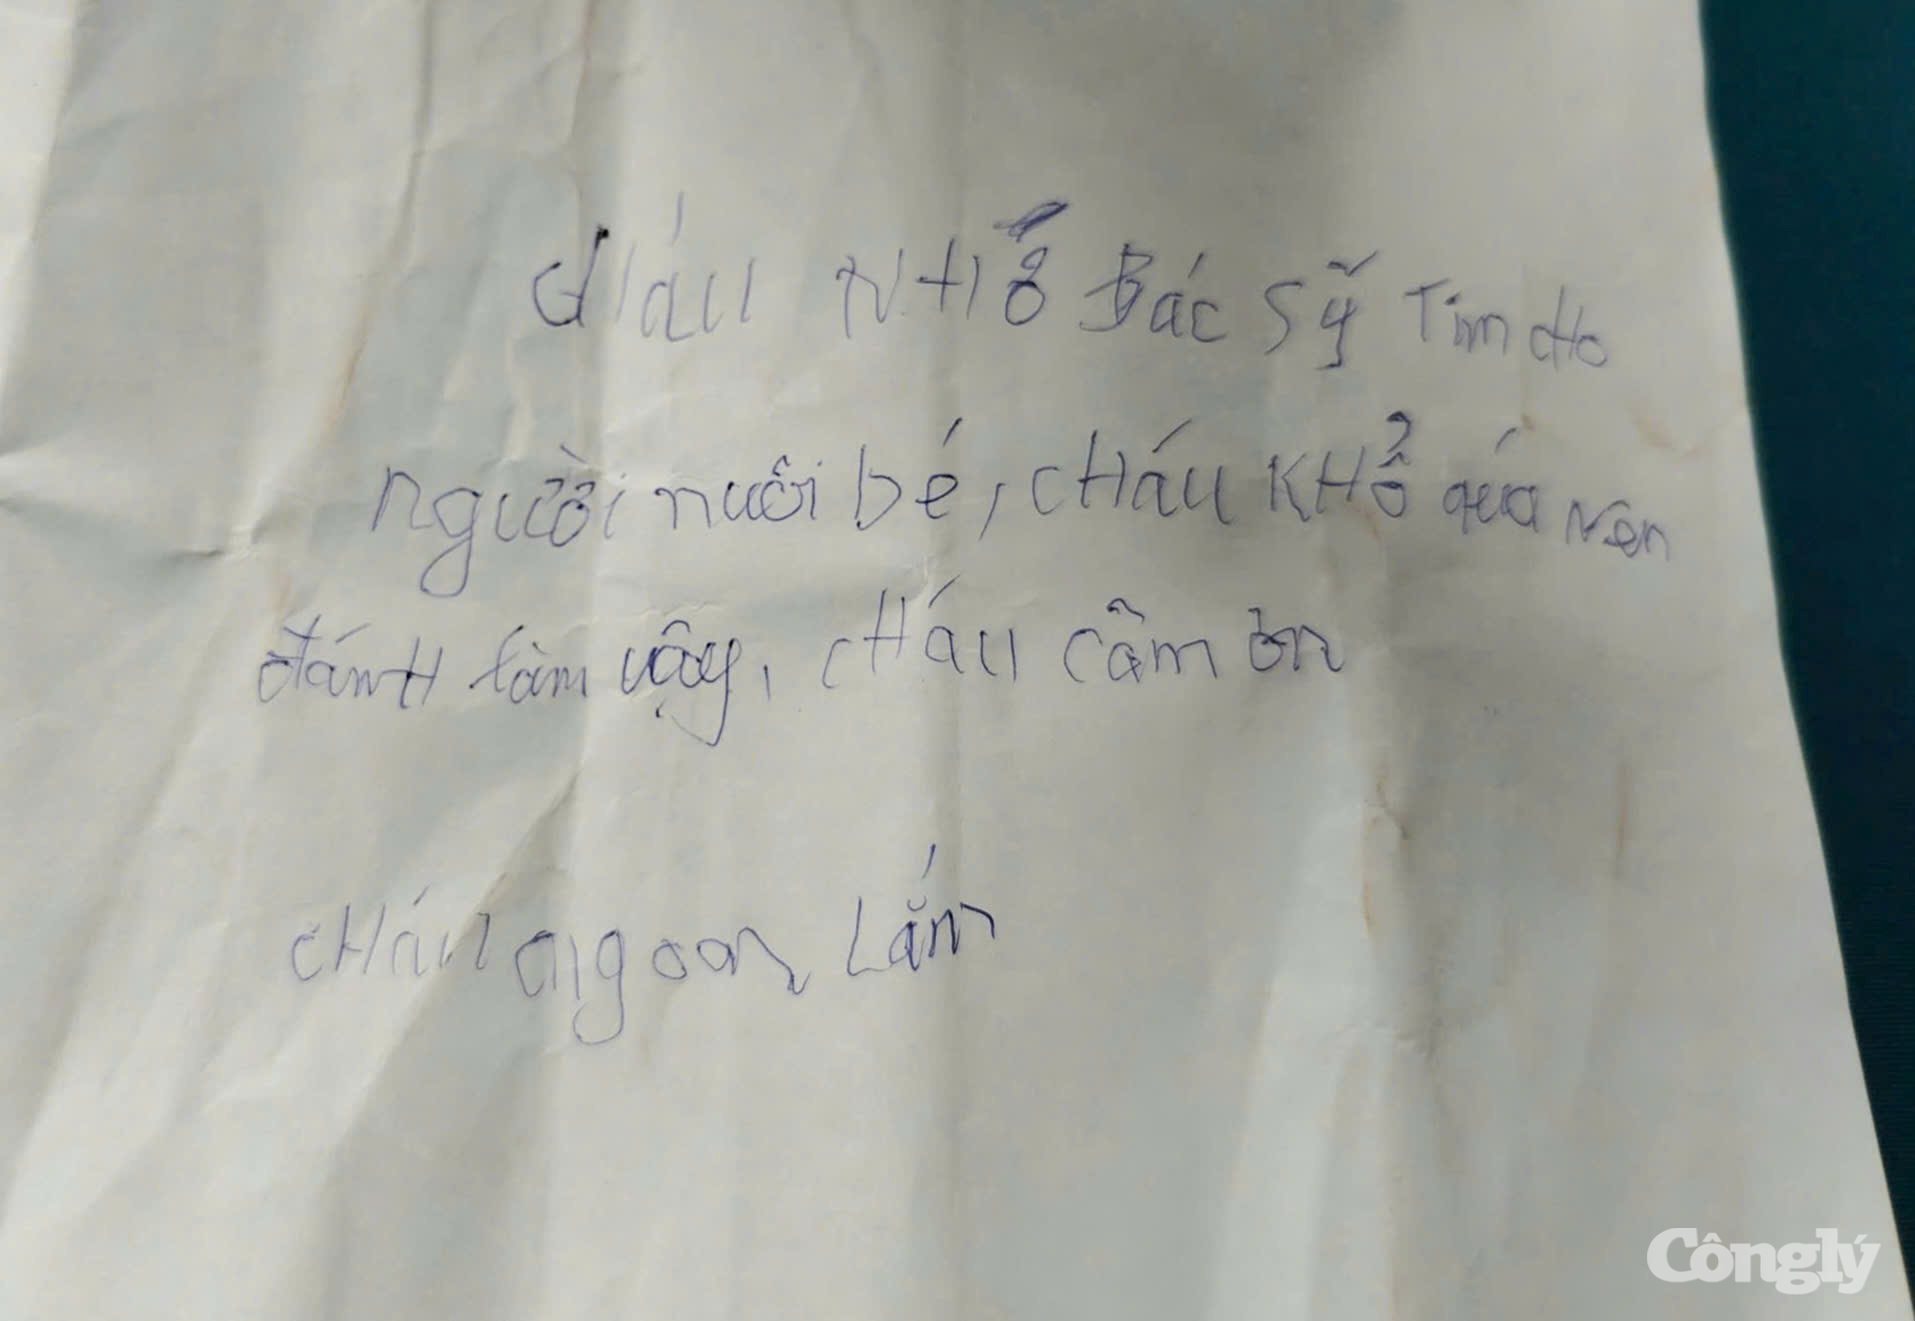 cháu NHổ Bác sỹ Tìm cHo
người nuôi bé, cHáu KHổ qúa Nên
đánH làm vậy, cHáu cãm ơn
cHáu ngoan Lắm
Cônglý